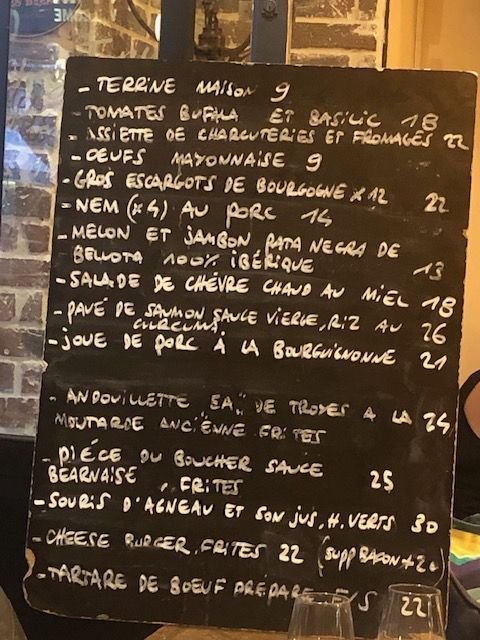 - TERRINE MAISON 9
- TOMATES BUFALA ET BASILIC 18
- ASSIETTE DE CHARCUTERIES ET FROMAGES 22
- OEUFS MAYONNAISE 9
- GROS ESCARGOTS DE BOURGOGNE x12 22
- NEM (x4) AU PORC 14
- MELON ET JAMBON PATA NEGRA DE
BELLOTA 100% IBÉRIQUE 13
- SALADE DE CHÈVRE CHAUD AU MIEL 18
- PAVÉ DE SAUMON SAUCE VIERGE, RIZ AU 26
CURCUMA
- JOUE DE PORC À LA BOURGUIGNONNE 21
- ANDOUILLETTE 5A" DE TROYES A LA 24
MOUTARDE ANCIENNE FRITES
- PIÉCE DU BOUCHER SAUCE
BEARNAISE, FRITES 25
- SOURIS D'AGNEAU ET SON JUS, H. VERTS 30
- CHEESE BURGER, FRITES 22 (SUPP BACON + 2€)
- TARTARE DE BOEUF PRÉPARÉ F/S 22